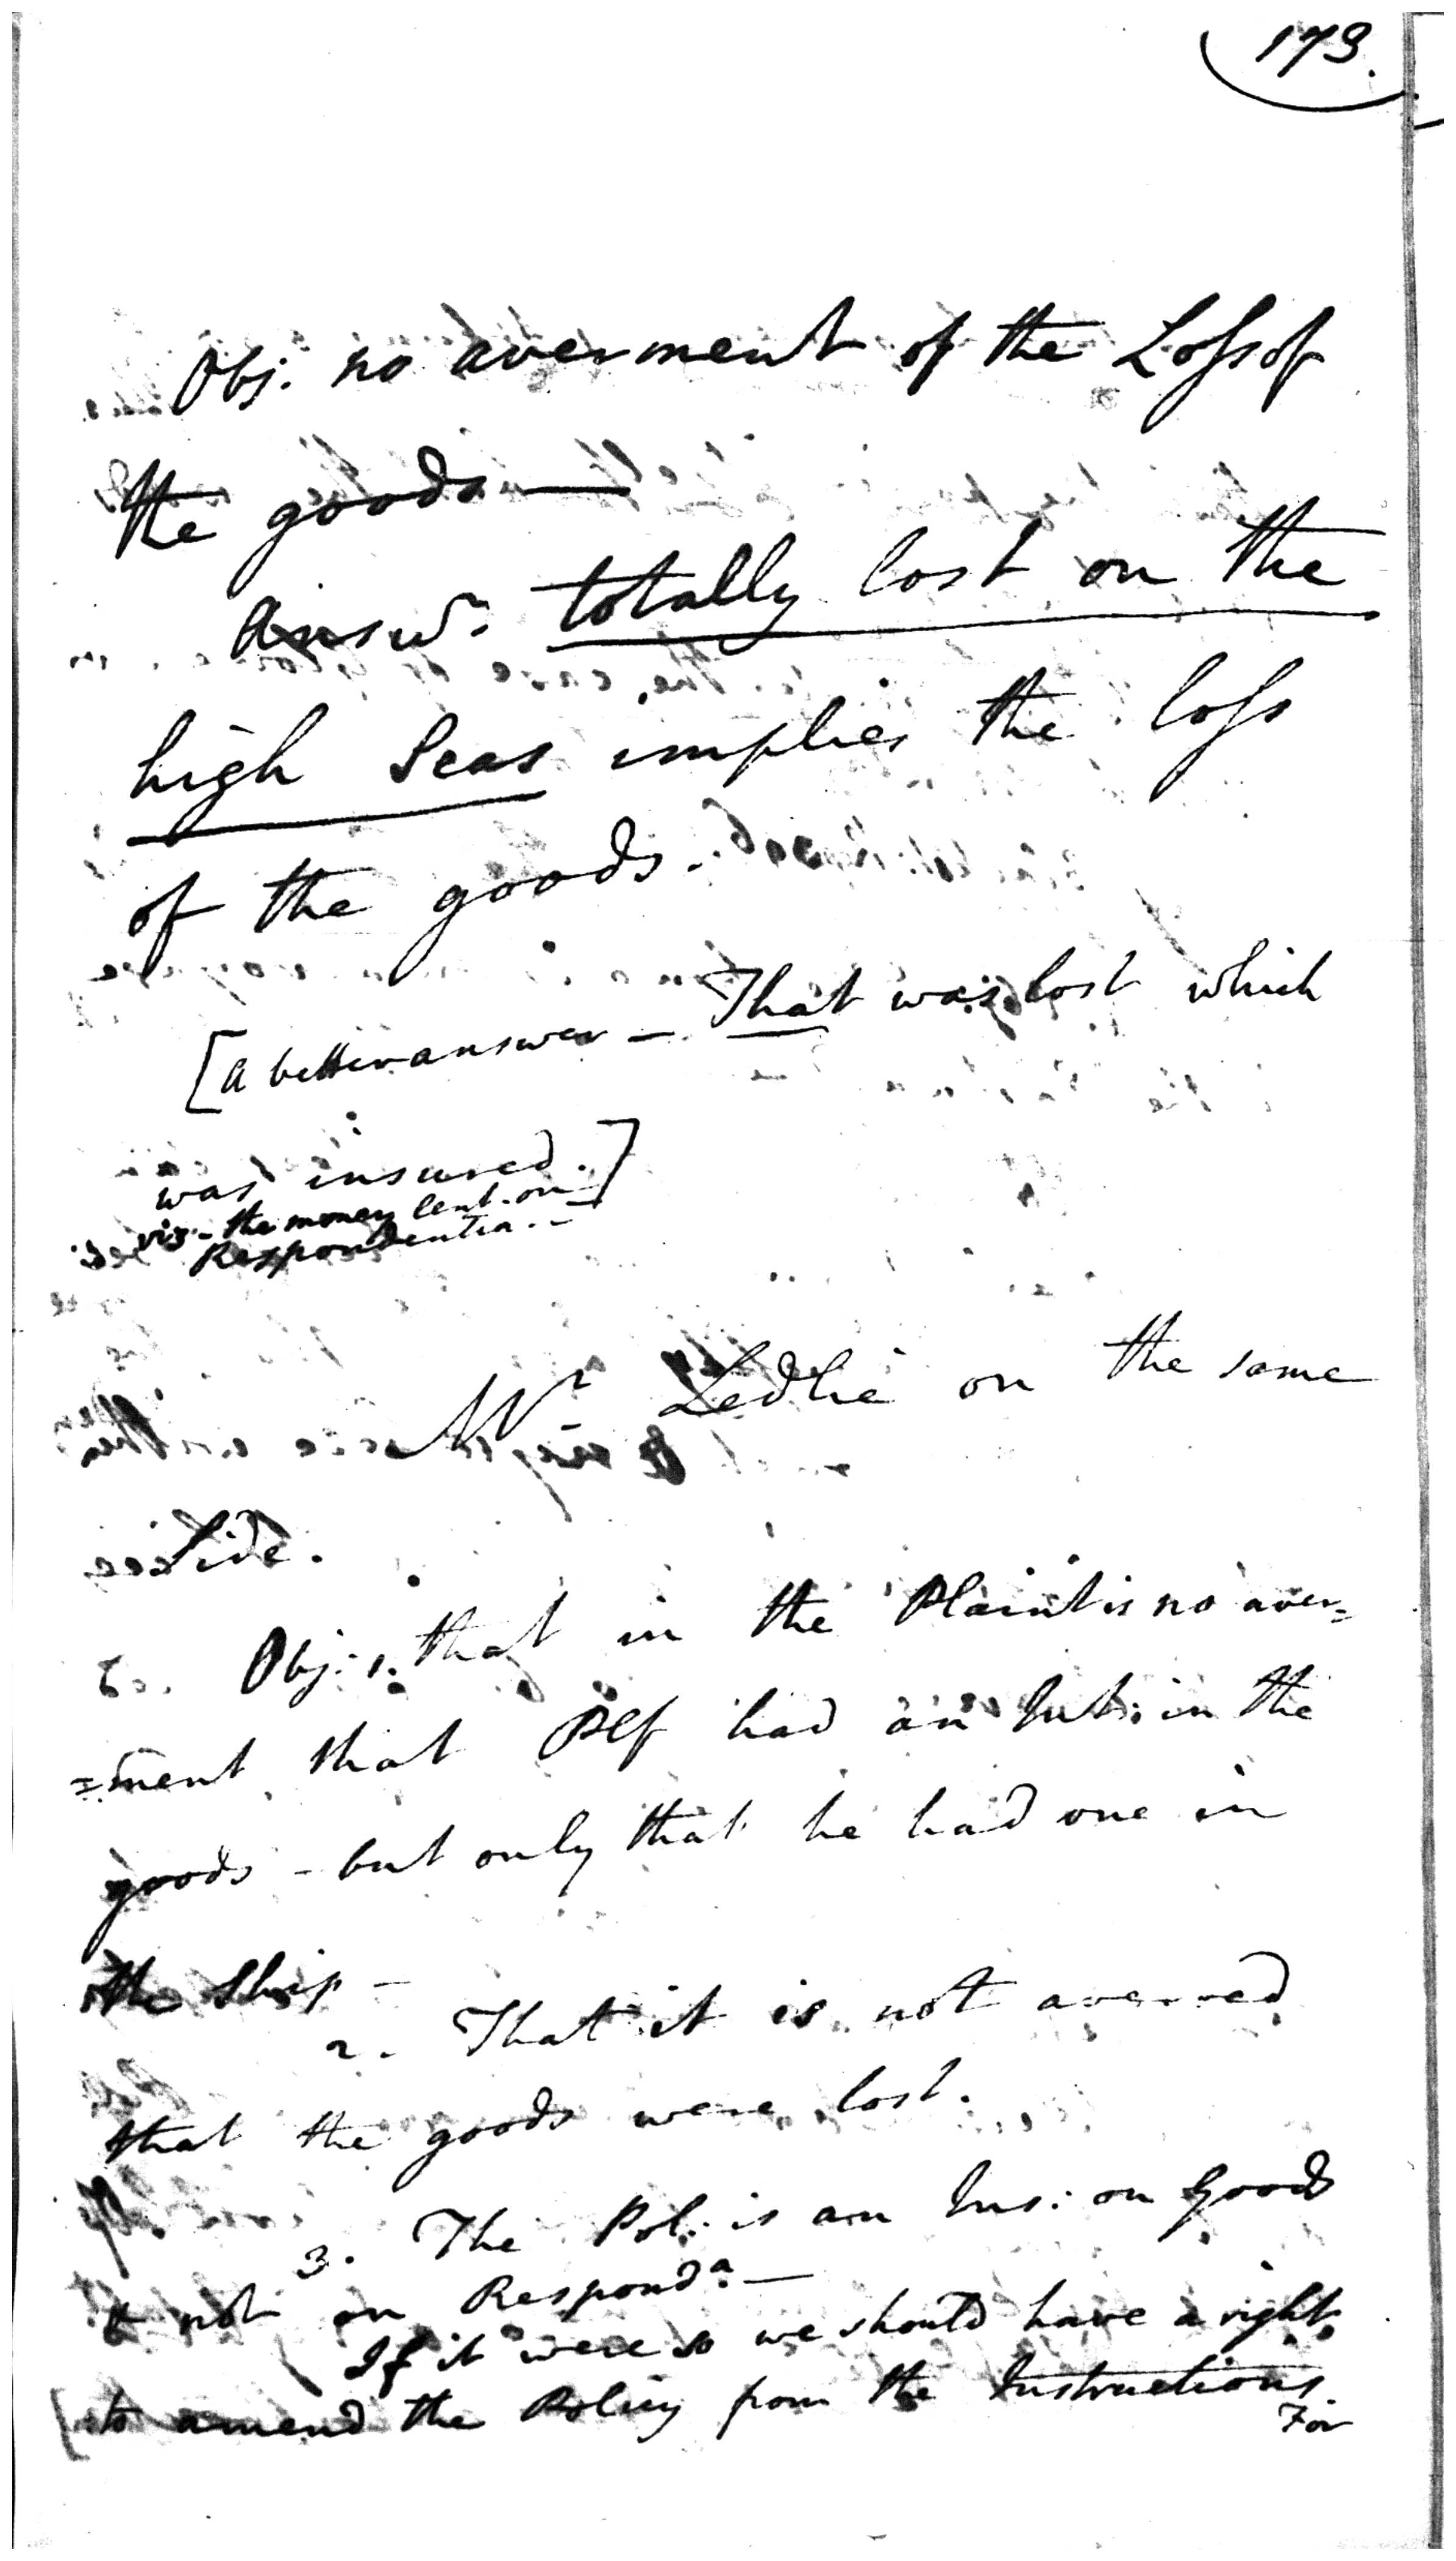 173.
Obj. no averment of the Loss of
the goods —
Answr. totally lost on the
high Seas implies the loss
of the goods.
[a better answer — That was lost which
was insured.]
viz. the money lent on
Respondentia. —
Mr Ledlie on the same
Side.
Obj: 1. that in the Plaint is no aver=
=ment that Plf had an Int: in the
goods - but only that he had one in
the Ship —
2. That it is not averred
that the goods were lost.
3. The Pol: is an Ins: on Goods
& not on Responda. —
If it were so we should have a right
[to amend the Policy from the Instructions.
For